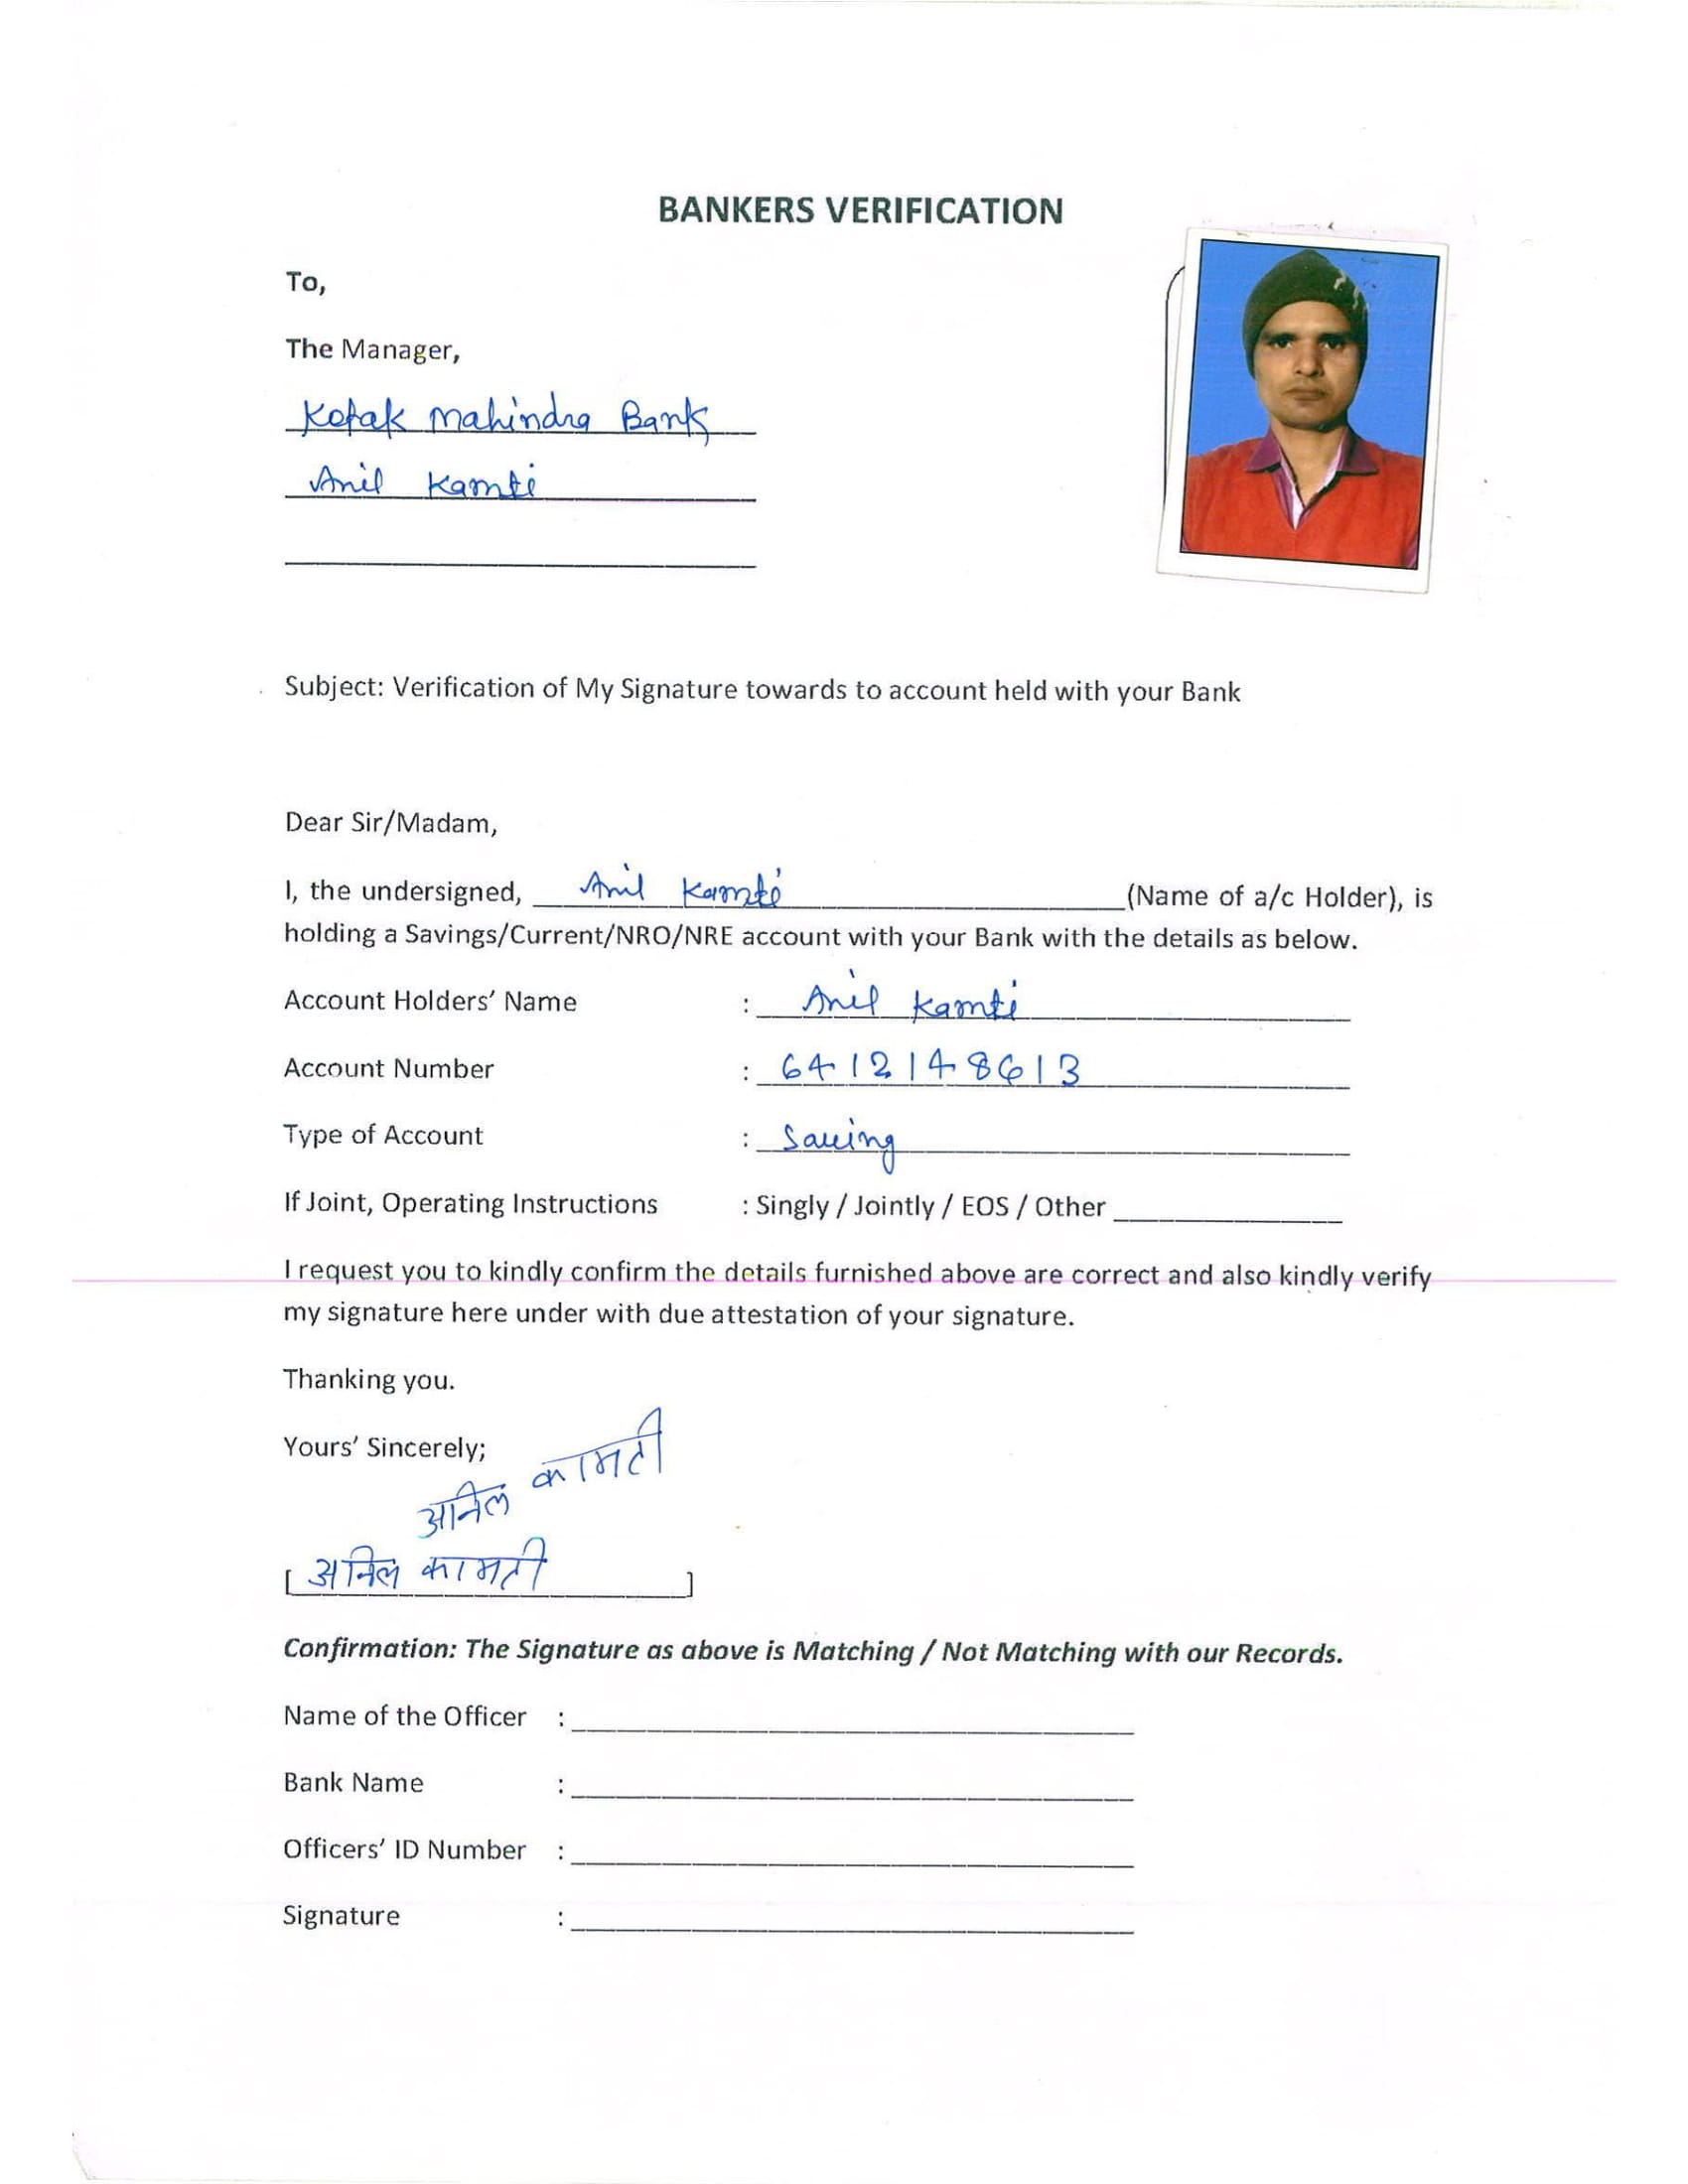 BANKERS VERIFICATION
To,
The Manager,
Kotak Mahindra Bank
Anil Kamti
Subject: Verification of My Signature towards to account held with your Bank
Dear Sir/Madam,
I, the undersigned, Anil Kamti (Name of a/c Holder), is
holding a Savings/Current/NRO/NRE account with your Bank with the details as below.
Account Holders' Name : Anil Kamti
Account Number : 6412148613
Type of Account : Saving
If Joint, Operating Instructions : Singly / Jointly / EOS / Other
I request you to kindly confirm the details furnished above are correct and also kindly verify
my signature here under with due attestation of your signature.
Thanking you.
Yours' Sincerely;
अनिल कामती
[ अनिल कामती ]
Confirmation: The Signature as above is Matching / Not Matching with our Records.
Name of the Officer :
Bank Name :
Officers' ID Number :
Signature :